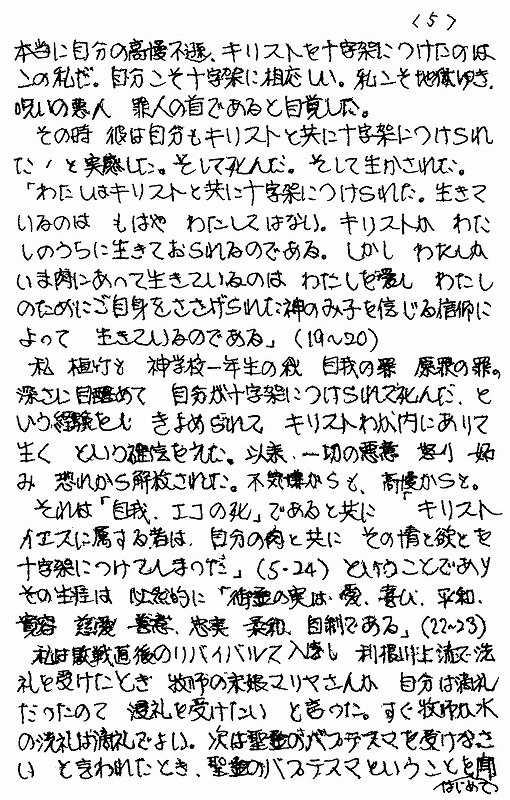 〈5〉
本当に自分の高慢不遜、キリストを十字架につけたのは
この私だ。自分こそ十字架に相応しい。私こそ地獄ゆき、
呪いの悪人 罪人の首であると自覚した。
その時 彼は自分もキリストと共に十字架につけられ
た、と実感した。そして死んだ。そして生かされた。
「わたしはキリストと共に十字架につけられた。生きて
いるのは もはや わたしではない。キリストが わた
しのうちに生きておられるのである。しかし わたしが
いま肉にあって生きているのは わたしを愛し わたし
のためにご自身をささげられた神のみ子を信じる信仰に
よって 生きているのである」(19〜20)
私 植竹も 神学校一年生の秋 自我の罪 原罪の罪。
深さに目醒めて 自分が十字架につけられて死んだ、と
いう経験をし きよめられて キリストわが内にありて
生く という確信をえた。以来、一切の悪意 怒り 妬
み 恐れから解放された。不気嫌からも、高慢からも。
それは「自我、エゴの死」であると共に 「キリスト
イエスに属する者は、自分の肉と共に その情と欲とを
十字架につけてしまった」(5・24) ということであり
その生涯は 必然的に「御霊の実は、愛、喜び、平和、
寛容 慈愛 善意、忠実 柔和、自制である」(22〜23)
私は敗戦直後のリバイバルで入信し 利根川上流で洗
礼を受けたとき 牧師の末娘マリヤさんが 自分は滴礼
だったので 浸礼を受けたい と言った。すぐ牧師が水
の洗礼は滴礼でよい。次は聖霊のバプテスマを受けなさ
い と言われたとき、聖霊のバプテスマということを聞
はじめて